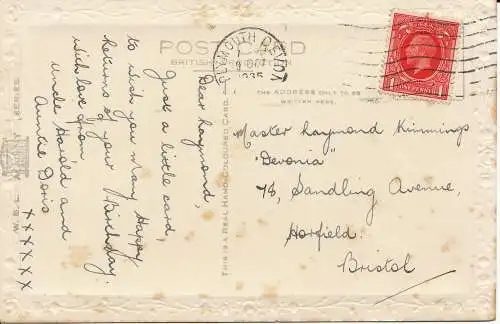 POST CARD
BRITISH
PLYMOUTH DEVON
9 OCT
1935
ONE PENNY
THE ADDRESS ONLY TO BE
WRITTEN HERE.
Dear Raymond,
Just a little card,
to wish you Many Happy
Returns of your Birthday.
with love from
Uncle Harold and
Auntie Doris
xxxxxx
THIS IS A REAL HAND-COLOURED CARD.
SERIES
Master Raymond Kimmings
"Devonia"
78, Sandling Avenue,
Horfield,
Bristol